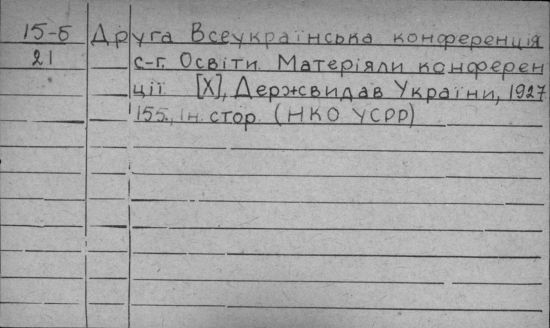 15-Б Друга Всеукраїнська конференція
21 с-г. Освіти. Матеріяли конферен
ції [Х], Держвидав України, 1927
155, ін. стор. (НКО УСРР)